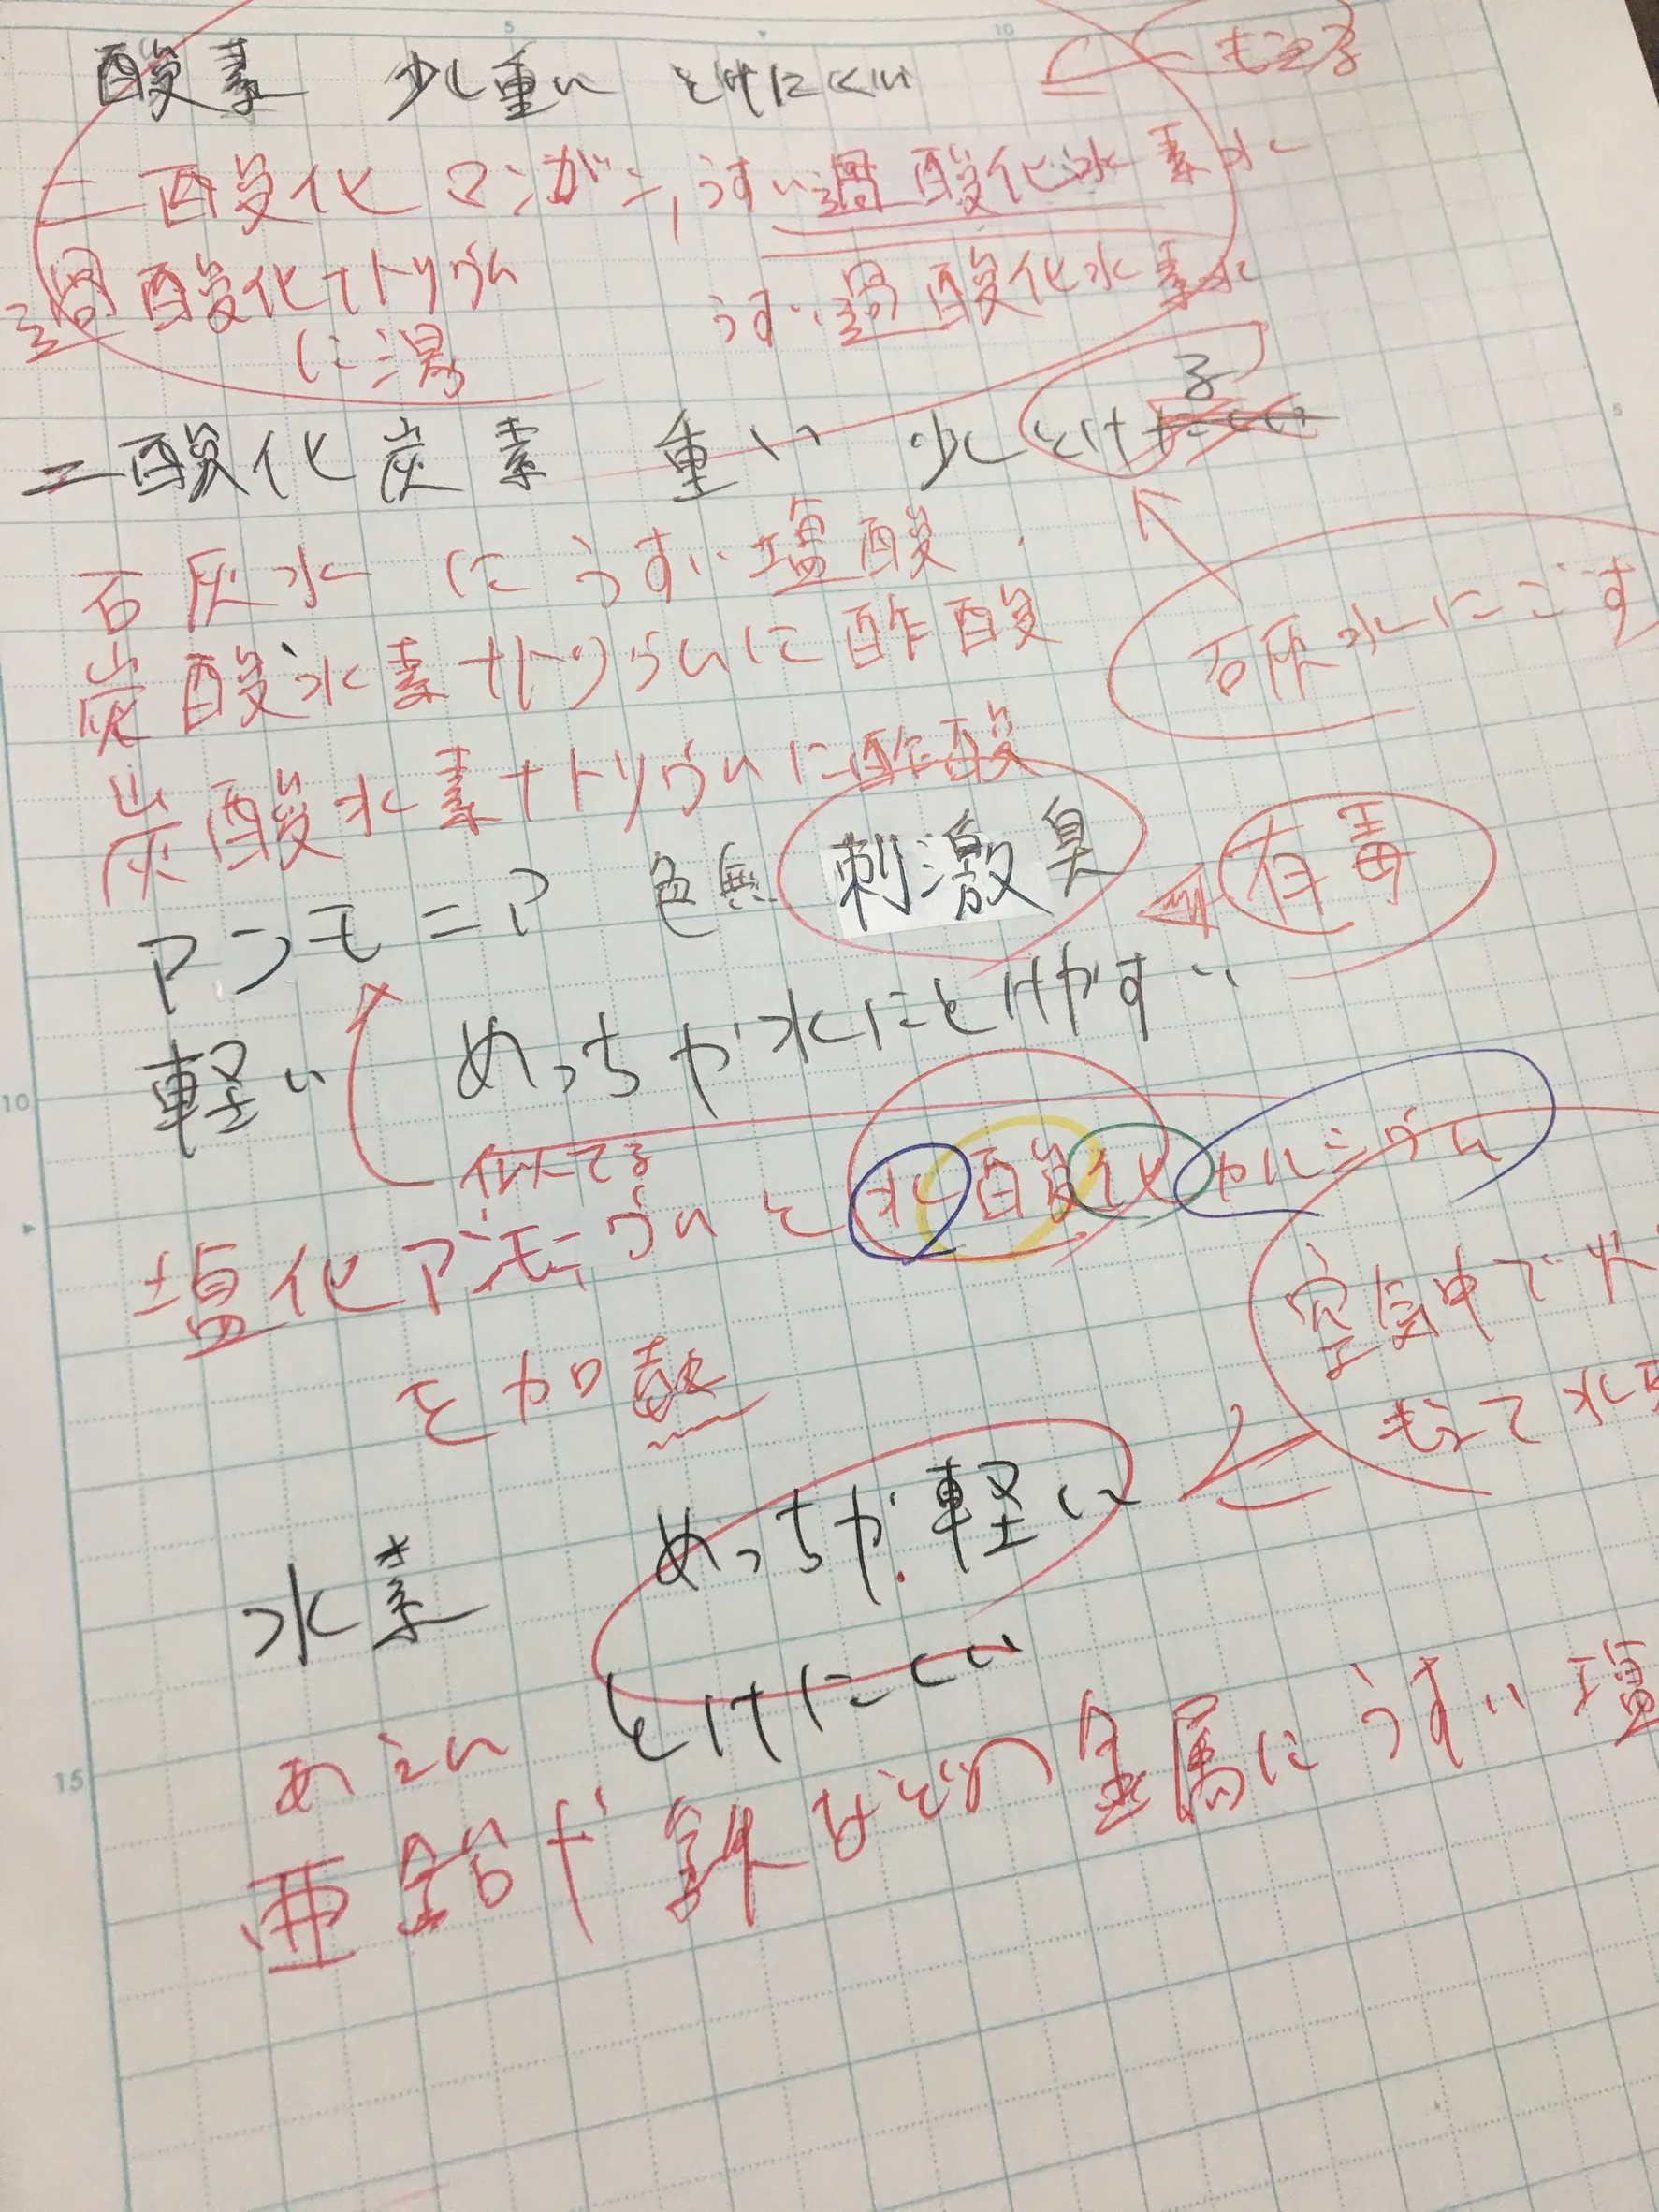 酸素 少し重い とけにくい
もえる
二酸化マンガン,うすい過酸化水素水
過酸化ナトリウム
に湯
うすい過酸化水素水
二酸化炭素 重い 少しとける
石灰水にうすい塩酸
石灰水にごす
炭酸水素ナトリウムに酢酸
炭酸水素ナトリウムに酢酸
アンモニア 色無 刺激臭 有毒
軽い めっちゃ水にとけやすい
似てる
塩化アンモニウムと水酸化カルシウム
を加熱
空気中で火
もえて水
水素 めっちゃ軽い
とけにくい
あえん
亜鉛や鉄などの金属にうすい塩